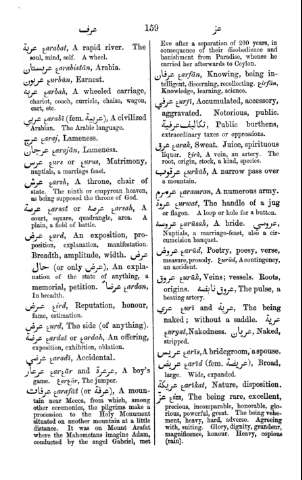 عرف
159
عز
عربة ɛarabat, A rapid river. The
soul, mind, self. A wheel.
عربستان ɛarabistān, Arabia.
عربون ɛurbūn, Earnest.
عربه ɛarbah, A wheeled carriage,
chariot, coach, curricle, chaise, wagon,
cart, etc.
عربي ɛarabī (fem. عربية), A civilized
Arabian. The Arabic language.
عرج ɛaraj, Lameness.
عرجان ɛarajān, Lameness.
عرس ɛurs or ɛurus, Matrimony,
nuptials, a marriage feast.
عرش ɛarsh, A throne, chair of
state. The ninth or empyrean heaven,
as being supposed the throne of God.
عرصة ɛarsat or عرصه ɛarsah, A
court, square, quadrangle, area. A
plain, a field of battle.
عرض ɛarḍ, An exposition, pro-
position, explanation, manifestation.
Breadth, amplitude, width. عرض
حال (or only عرض), An expla-
nation of the state of anything, a
memorial, petition. عرضا ɛarḍan,
In breadth.
عرض ɛirḍ, Reputation, honour,
fame, estimation.
عرض ɛurḍ, The side (of anything).
عرضه ɛarḍat or ɛarḍah, An offering,
exposition, exhibition, oblation.
عرضي ɛaraḍī, Accidental.
عرعار ɛarɛār and عرعرة, A boy's
game. ɛarɛār, The jumper.
عرفات ɛarafāt (or عرفة), A moun-
tain near Mecca, from which, among
other ceremonies, the pilgrims make a
procession to the Holy Monument
situated on another mountain at a little
distance. It was on Mount Arafat
where the Mahometans imagine Adam,
conducted by the angel Gabriel, met
Eve after a separation of 200 years, in
consequence of their disobedience and
banishment from Paradise, whence he
carried her afterwards to Ceylon.
عرفان ɛirfān, Knowing, being in-
telligent, discerning, recollecting. ɛirfān,
Knowledge, learning, science.
عرفي ɛurfī, Accumulated, accessory,
aggravated. Notorious, public.
تكاليف عرفية, Public burthens,
extraordinary taxes or oppressions.
عرق ɛarak, Sweat. Juice, spirituous
liquor. ɛirk, A vein, an artery. The
root, origin, stock, a kind, species.
عرقوب ɛurkūb, A narrow pass over
a mountain.
عرمرم ɛaramram, A numerous army.
عروة ɛurwat, The handle of a jug
or flagon. A loop or hole for a button.
عروسه ɛarūsah, A bride. عروسي,
Nuptials, a marriage-feast, also a cir-
cumcision banquet.
عروض ɛarūḍ, Poetry, poesy, verse,
measure, prosody. ɛurūḍ, A contingency,
an accident.
عروق ɛurūk, Veins; vessels. Roots,
origins. عروق نابضة, The pulse, a
beating artery.
عري ɛurī and عرية, The being
naked; without a saddle. عرية
ɛuryat, Nakedness. عريان, Naked,
stripped.
عريس ɛarīs, A bridegroom, a spouse.
عريض ɛarīḍ (fem. عريضة), Broad,
large. Wide, expanded.
عريكة ɛarīkat, Nature, disposition.
عز ɛizz, The being rare, excellent,
precious, incomparable, honorable, glo-
rious, powerful, great. The being vehe-
ment, heavy, hard, adverse. Agreeing
with, suiting. Glory, dignity, grandeur,
magnificence, honour. Heavy, copious
(rain).